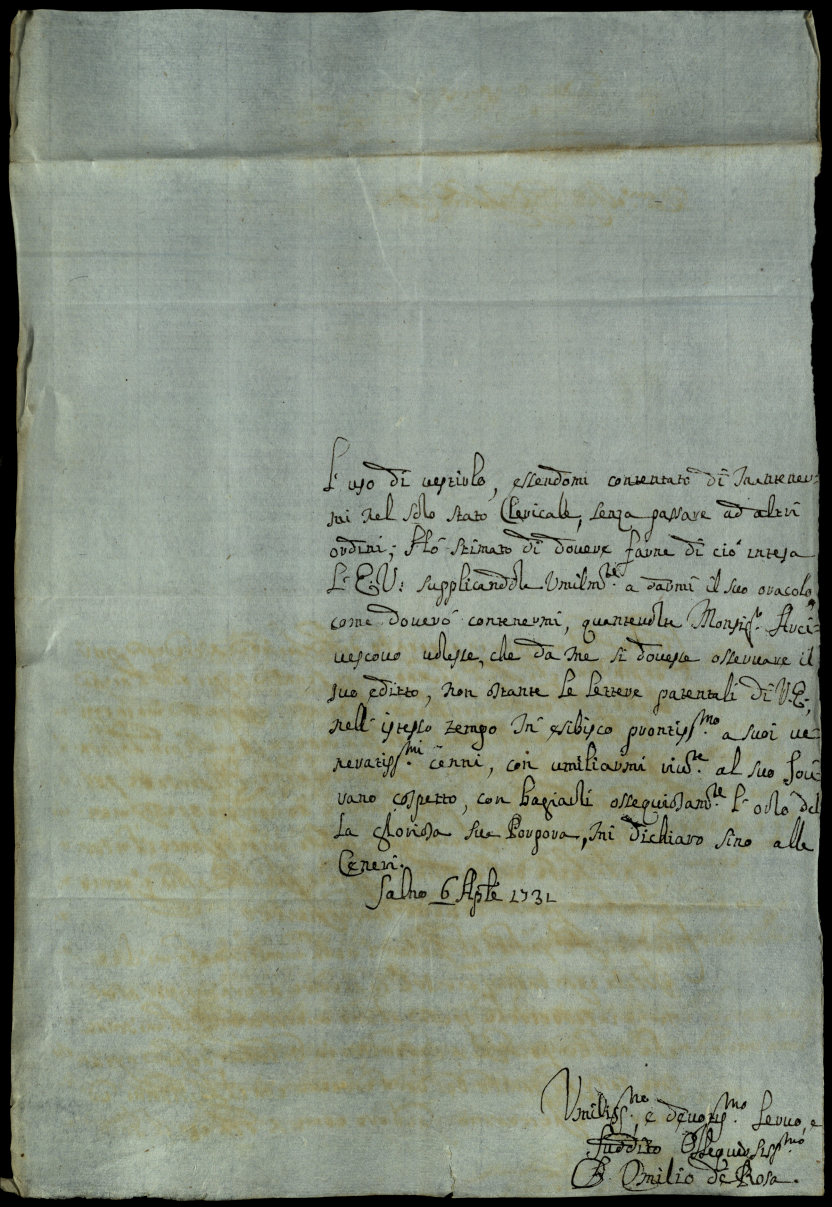 L'uso di vestirlo, essendomi contentato di mantener=
mi nel solo stato Clericale, senza passare ad altri
ordini; Hò stimato di dovere farne di ciò intesa
L'E.V: supplicandola Umilm.te a darmi il suo oracolo,
come doverò contenermi, quantevolte Monsig.r Arci=
vescovo volesse, che da me si dovesse osservare il
suo editto, non ostante le lettere patentali di V.E.,
nell'istesso tempo m'esibisco prontiss.mo a suoi ve=
neratiss.mi cenni, con umiliarmi riv.te al suo Sou=
vano cospetto, con bagiarli ossequiosam.te l'orlo del
la gloriosa sua Porpora, mi dichiaro sino alle
Ceneri.
Salno 6 Aple 1731
Umiliss.mo, e devotiss.mo Servo, e
suddito Ossequiosiss.mo
Emilio de Rosa.